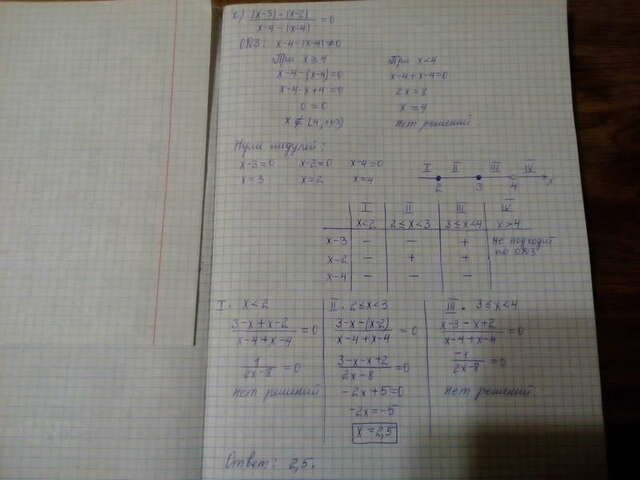 |x-3| - |x-2|
x-4 - |x-4| = 0
ОДЗ: x-4-|x-4| ≠ 0
При x ≥ 4
При x < 4
x-4-(x-4)=0
x-4+x-4=0
x-4-x+4=0
2x=8
0=0
x=4
x ∉ [4;+∞)
Нет решений
Нули модулей:
x-3=0 x-2=0 x-4=0
x=3 x=2 x=4
I II III IV
2 3 4 x
I II III IV
x<2 2≤x<3 3≤x<4 x>4
x-3 - - + Не подходит по ОДЗ
x-2 - + +
x-4 - - -
I. x<2
3-x+x-2
x-4+x-4 = 0
1
2x-8 = 0
Нет решений
II. 2≤x<3
3-x-(x-2)
x-4+x-4 = 0
3-x-x+2
2x-8 = 0
-2x+5=0
-2x=-5
x=2,5
III. 3≤x<4
x-3-x+2
x-4+x-4 = 0
-1
2x-8 = 0
Нет решений
Ответ: 2,5.